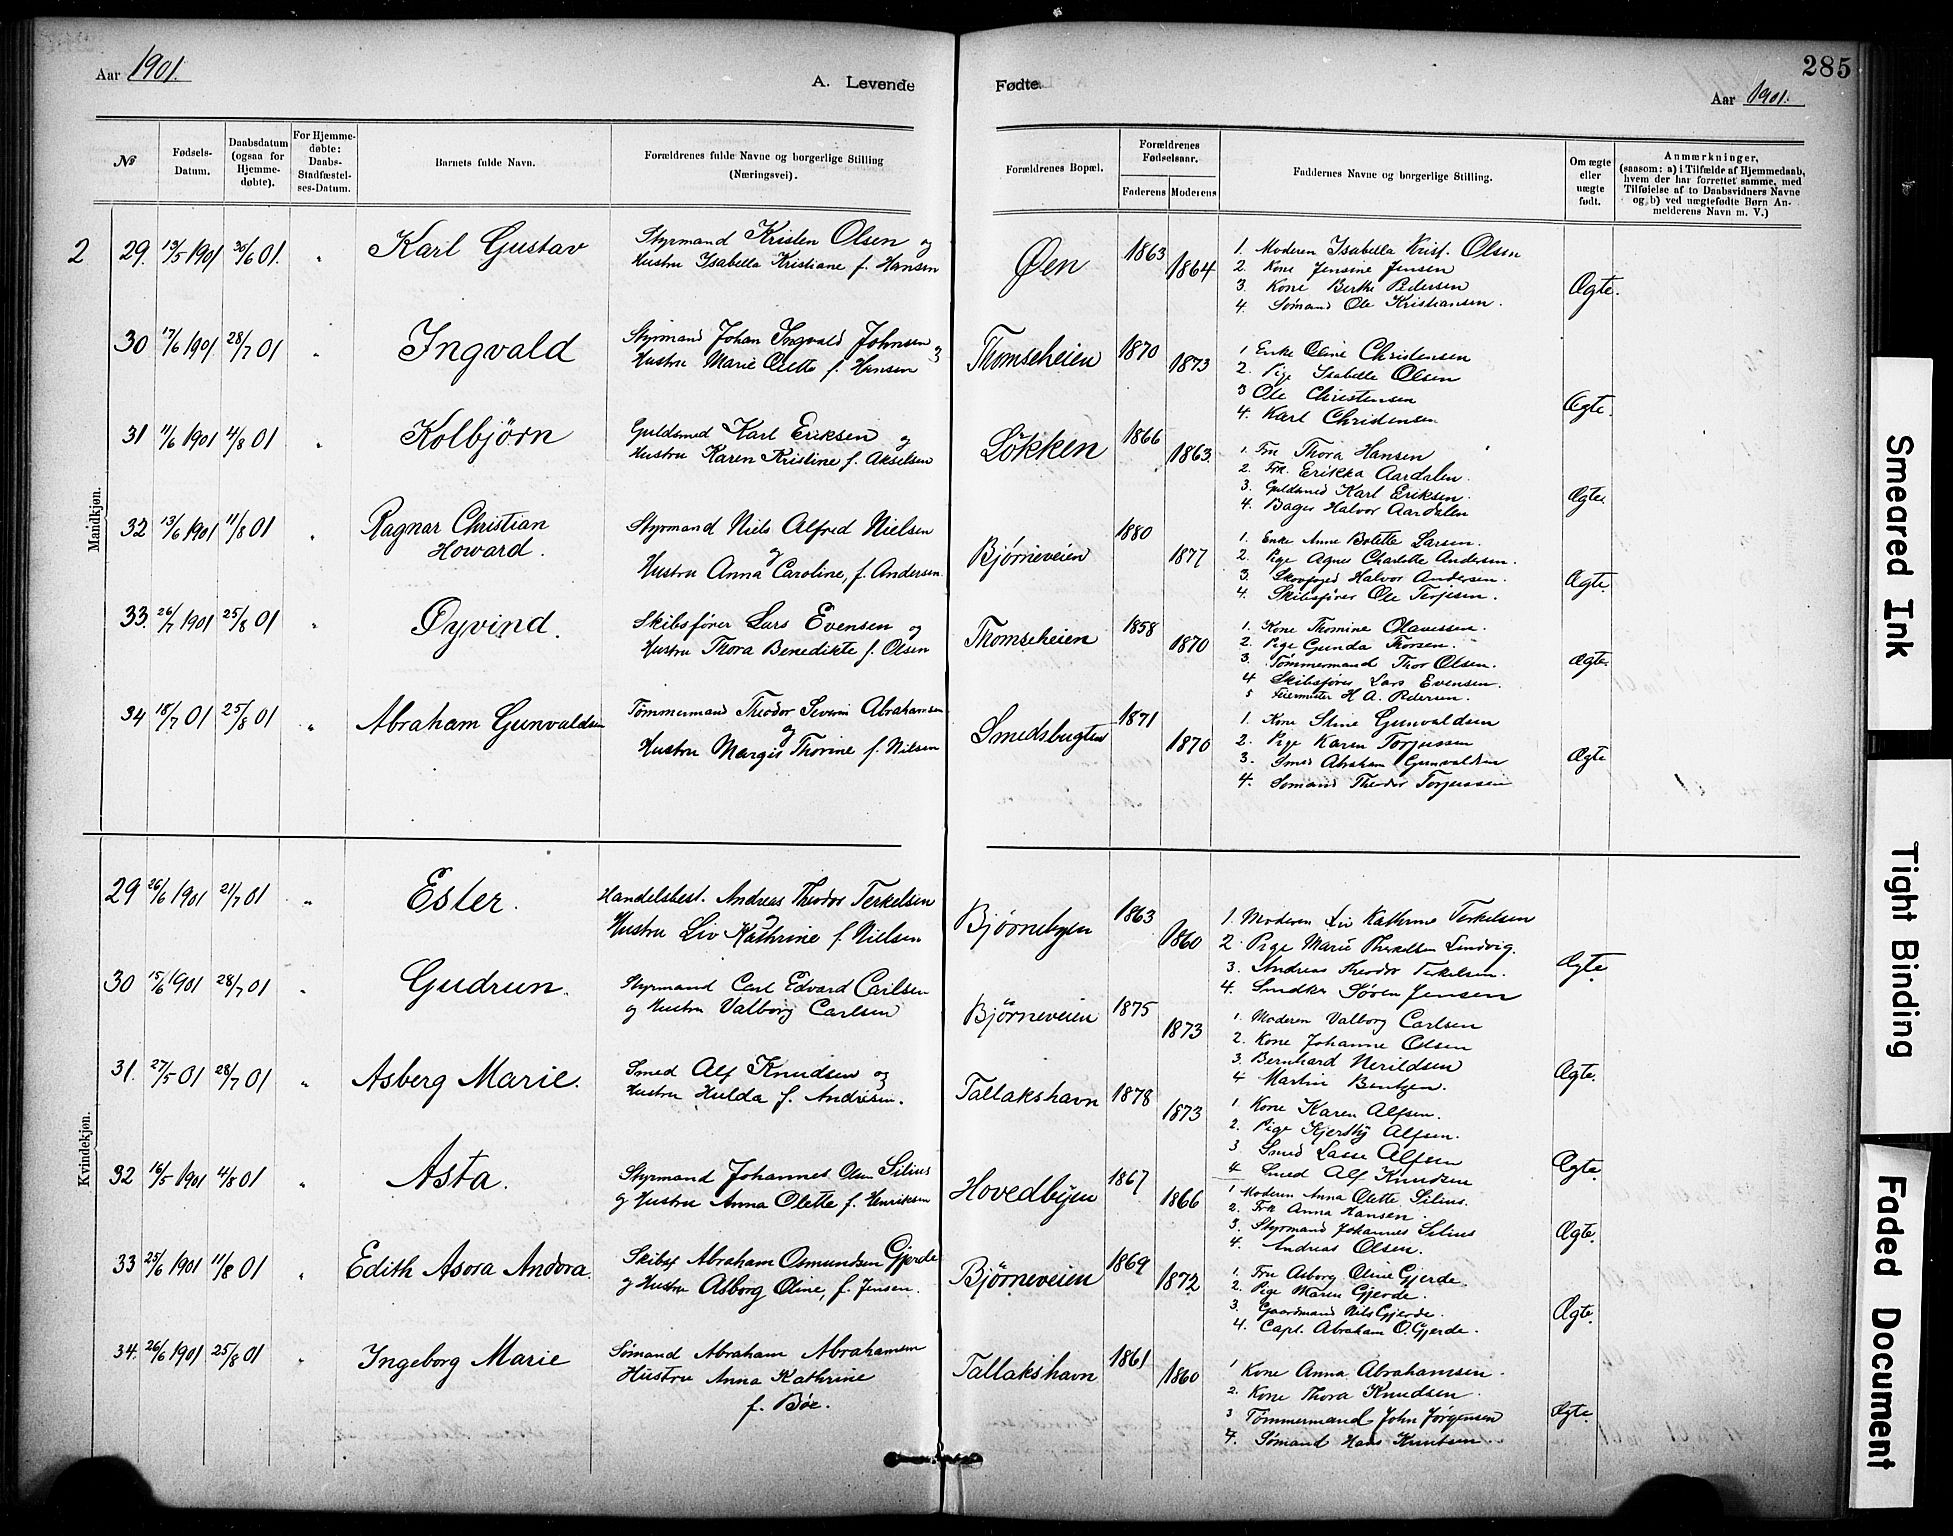 Aar 1901.
A. Levende
Fødte.
285
Aar 1901.
№
Fødsels-Datum.
Daabsdatum (ogsaa for Hjemme-døbte).
For Hjemme-døbte: Daabs-Stadfæstel-ses-Datum.
Barnets fulde Navn.
Forældrenes fulde Navne og borgerlige Stilling (Næringsvei).
Forældrenes Bopæl.
Forældrenes Fødselsaar.
Faderens Moderens
Faddernes Navne og borgerlige Stilling.
Om ægte eller uægte født.
Anmærkninger, (saasom: a) i Tilfælde af Hjemmedaab, hvem der har forrettet samme, med Tilføielse af to Daabsvidners Navne og b) ved uægtefødte Børn An-melderens Navn m. V.)
Mandkjøn.
2 29. 13/5 1901 30/6 01. " Karl Gustav
Styrmand Kristen Olsen og
Hustru Isabella Kristiane f. Hansen
Øen 1863 1864
1. Moderen Isabella Krist. Olsen
2. Kone Jensine Jensen
3. Kone Berthe Pedersen
4. Sømand Ole Kristiansen.
Ægte.
30 17/6 1901 28/7 01 " Ingvald
Styrmand Johan Ingvald Johnsen og
Hustru Marie Olette f. Hansen
Thomseheien 1870 1873
1. Enke Oline Christensen
2. Pige Isabelle Olsen
3 Ole Christensen
4. Karl Christensen
Ægte.
31 11/6 1901 4/8 01 " Kolbjørn
Guldsmed Karl Eriksen og
Hustru Karen Kristine f. Akselsen
Løkken 1866 1863.
1. Fru Thora Hansen
2. Frk. Erikka Aardalen.
3. Guldsmed Karl Eriksen.
4. Bager Halvor Aardalen
Ægte.
32 13/6 1901 11/8 01 " Ragnar Christian
Howard.
Styrmand Niels Alfred Nielsen
og
Hustru Anna Caroline, f. Andersen.
Bjørneveien 1880 1877
1. Enke Anne Bolette Larsen.
2. Pige Agnes Charlotte Andersen.
3. Skovfoged Halvor Andersen.
4. Skibsfører Ole Terjesen.
Ægte.
33. 26/7 1901 25/8 01 " Øyvind.
Skibsfører Lars Evensen og
Hustru Thora Benedikte f. Olsen
Thomseheien 1858 1870
1. Kone Thomine Olavessen.
2. Pige Gunda Thorsen.
3. Tømmermand Thor Olsen.
4 Skibsfører Lars Evensen.
5 Feiermester H. A. Pedersen.
Ægte.
34 18/7 01 25/8 01 " Abraham Gunvaldsen
Tømmermand Theodor Severin Abrahamsen
og
Hustru Margit Thorine f. Nilsen
Smedsbugten 1871 1870
1. Kone Stine Gunvaldsen
2. Pige Karen Torjussen
3. Smed Abraham Gunvaldsen
4. Sømand Theodor Torjussen
Ægte
Kvindekjøn.
29 26/6 1901 21/7 01 " Ester.
Handelsbest. Andreas Theodor Terkelsen
og
Hustru Liv Kathrine f. Nielsen
Bjørnebyen 1863 1860
1. Moderen Liv Kathrine Terkelsen
2. Pige Marie Therkelsen Lindvig.
3. Andreas Theodor Terkelsen.
4. Snedker Søren Jensen
Ægte.
30 15/6 1901 28/7 01 " Gudrun.
Styrmand Carl Edvard Carlsen
og Hustru Valborg Carlsen
Bjørneveien 1875 1873
1. Moderen Valborg Carlsen
2. Kone Johanne Olsen
3. Bernhard Nerildsen
4 Martin Bentzen.
Ægte.
31. 27/5 01 28/7 01 " Asberg Marie.
Smed Alf Knudsen og
Hustru Hulda f. Andresen.
Tallakshavn 1878 1873
1. Kone Karen Alfsen.
2. Pige Kjersty Alfsen.
3 Smed Lasse Alfsen
4 Smed Alf Knudsen
Ægte.
32 16/5 1901 4/8 01 " Asta.
Styrmand Johannes Olsen Silius
og Hustru Anna Olette f. Henriksen
Hovedbyen 1867 1866
1. Moderen Anna Olette Silius.
2. Frk Anna Hansen.
3. Styrmand Johannes Silius
4. Andreas Olsen.
Ægte.
33 25/6 1901 11/8 01 " Edith Asora Andora.
Skibsf Abraham Osmundsen Gjerde
og Hustru Asborg Oline, f. Jensen.
Bjørneveien 1869 1872
1. Fru Asborg Oline Gjerde.
2. Pige Maren Gjerde.
3. Gaardmand Nils Gjerde.
4. Capt. Abraham O. Gjerde.
Ægte.
34. 26/6 1901 25/8 01 " Ingeborg Marie
Sømand Abraham Abrahamsen
Hustru Anna Kathrine
f. Bøe.
Tallakshavn 1861 1860
1 Kone Anna Abrahamsen.
2. Kone Thora Knudsen.
3 Tømmermand John Jørgensen
4. Sømand Hans Knutsen
Ægte.
Smeared Ink
Tight Binding
Faded Document